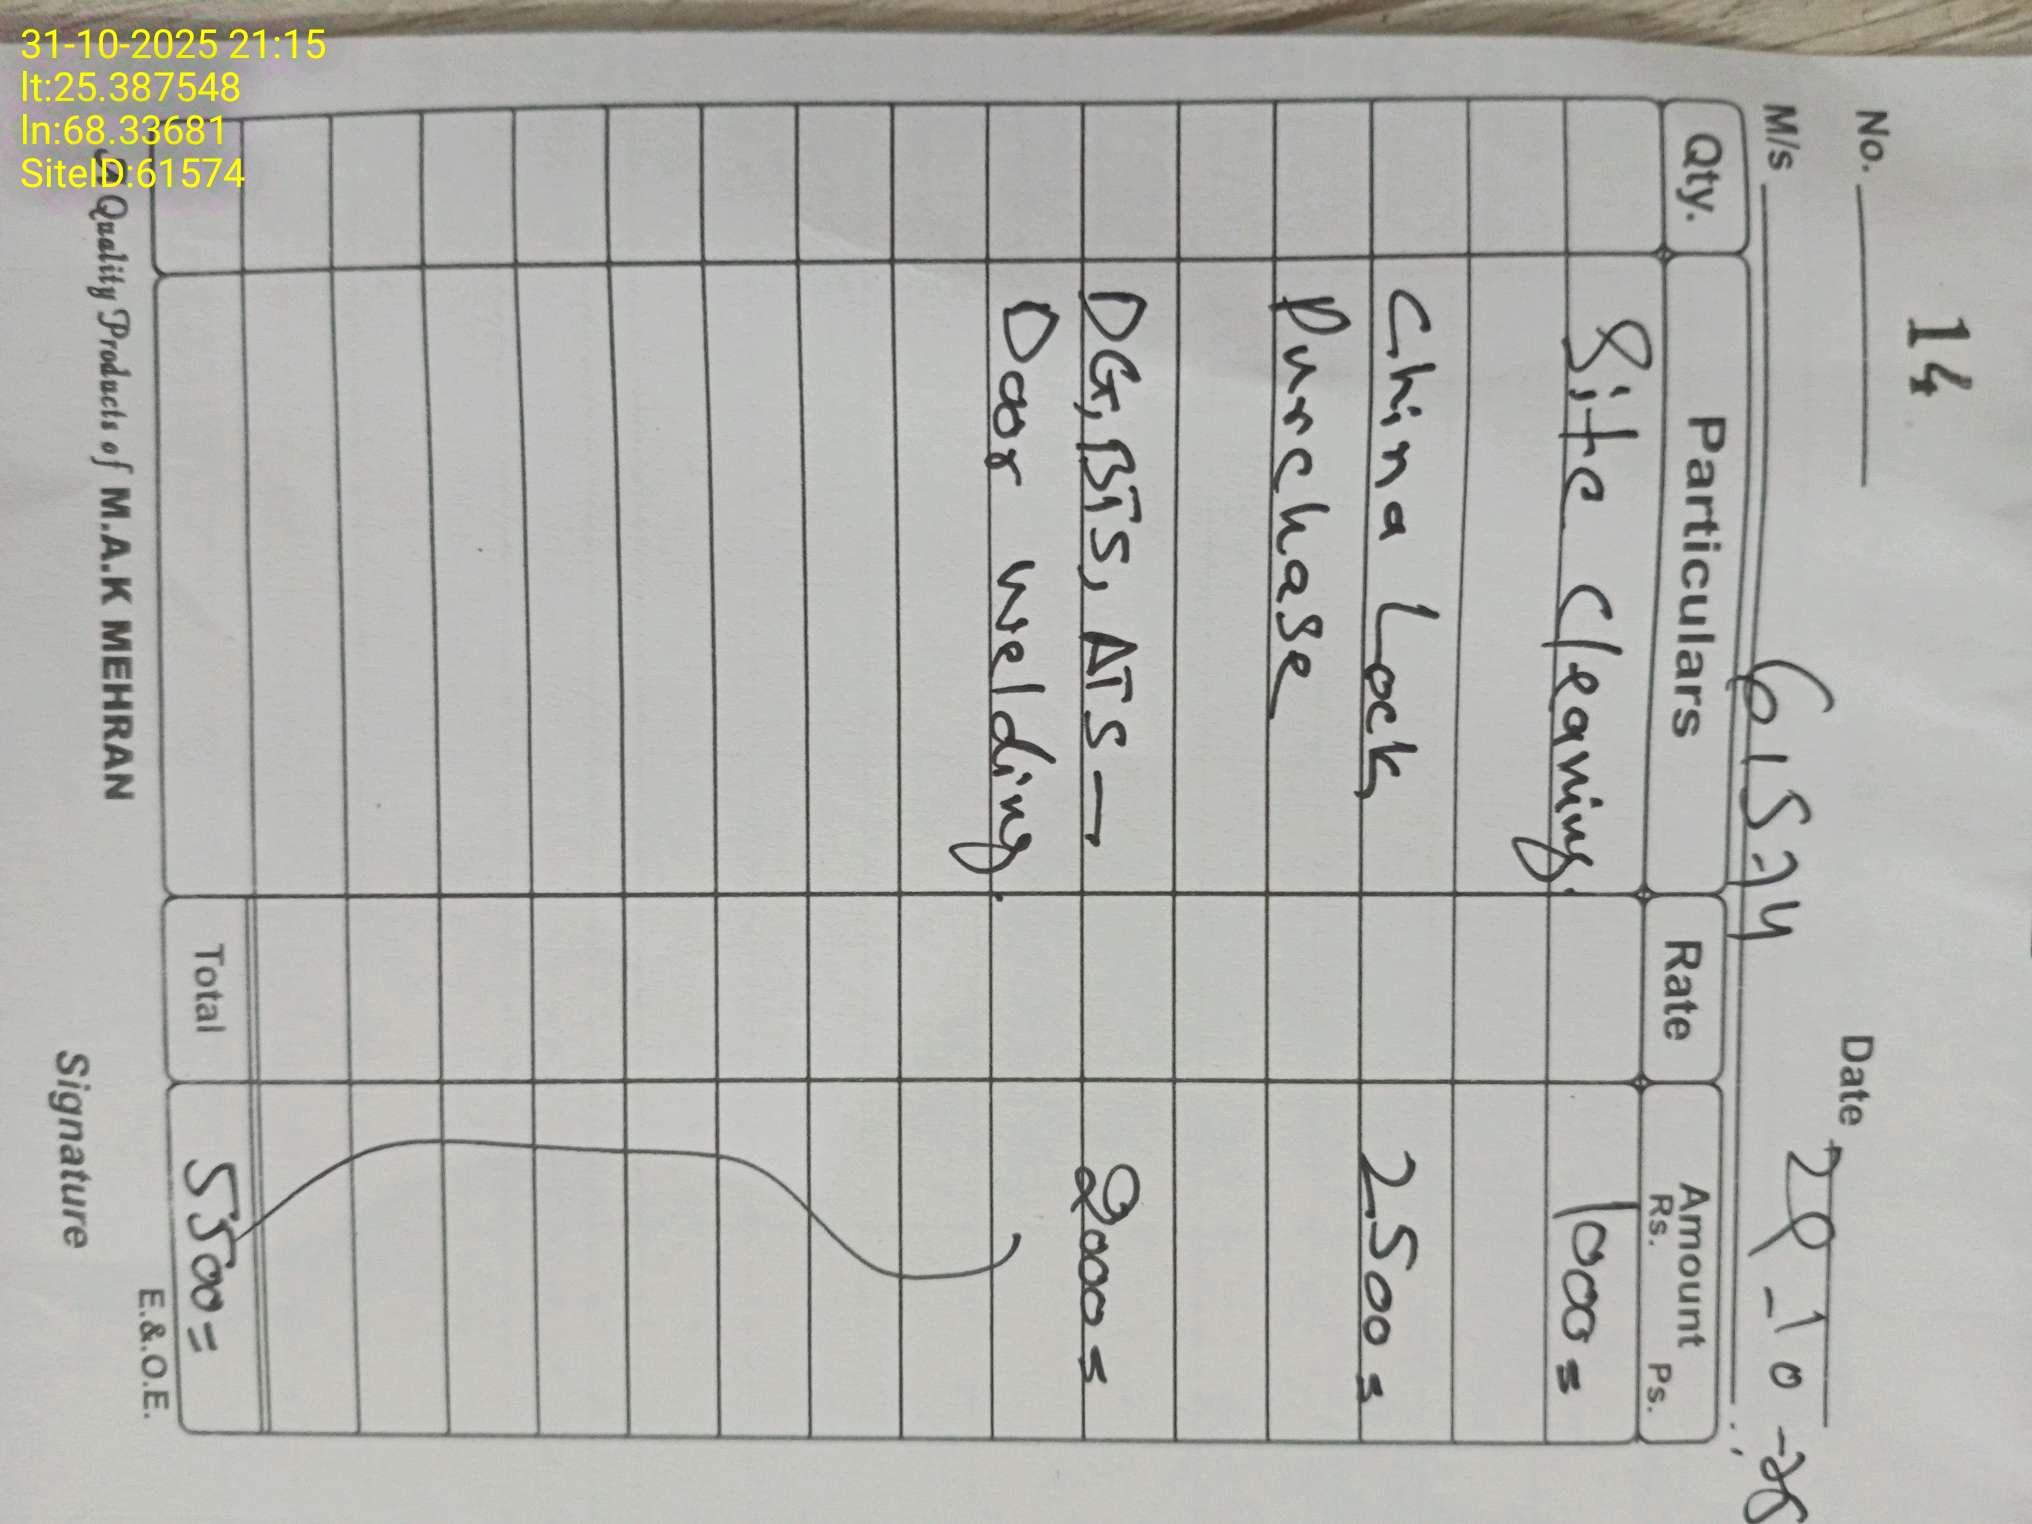 31-10-2025 21:15
lt:25.387548
ln:68.33681
SiteID:61574
14
No.
Date 29-10-25
M/s 61574
Qty. Particulars Rate Amount
Rs. Ps.
Site Cleaning. 1000=
China Lock 2500=
Purchase
DG, BTS, ATS— 2000=
Door welding.
Total 5500=
E.&.O.E.
Quality Products of M.A.K MEHRAN
Signature